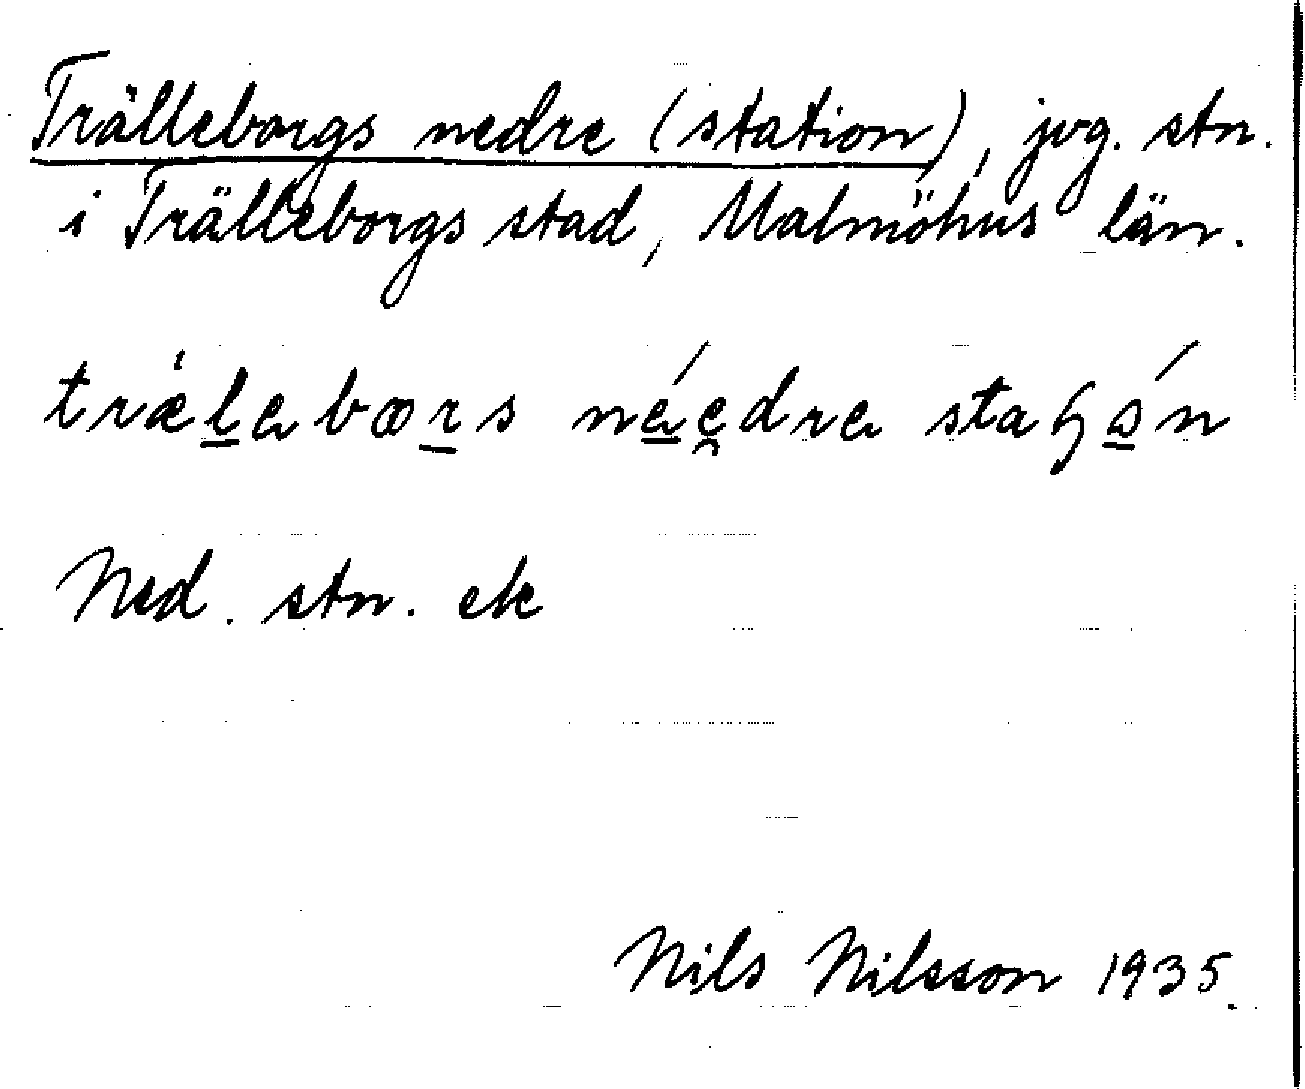 Trälleborgs nedre (station), jvg. stn.
i Trälleborgs stad, Malmöhus län.
træ̀lebors néedre staʃón
Ned. stn. ek
Nils Nilsson 1935.